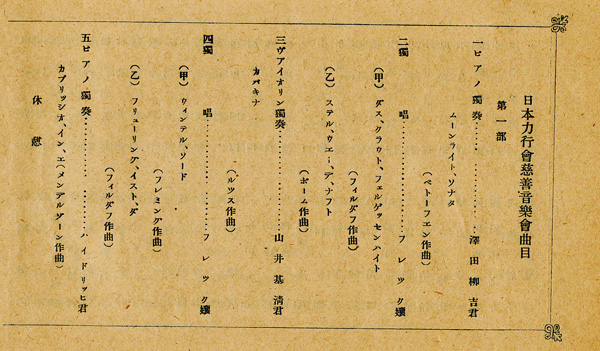 日本力行會慈善音樂會曲目
第一部
一ピアノ獨奏…………………澤田柳吉君
ムーンライト、ソナタ
(ベトーフエン作曲)
二獨唱…………………フレツク孃
(甲)ダス、クラウト、フエルゲツセンハイト
(フイルダフ作曲)
(乙)ステル、ウエー、デ、ナフト
(ボーム作曲)
三ヴアイオリン獨奏…………………山井基淸君
カバキナ
(ルツス作曲)
四獨唱…………………フレツク孃
(甲)ウインテル、ソード
(フレミング作曲)
(乙)フリユーリング、イスト、ダ
(フイルダフ作曲)
五ピアノ獨奏…………………ハイドリツヒ君
カプリツシオ、イン、エ(メンデルゾーン作曲)
休憩